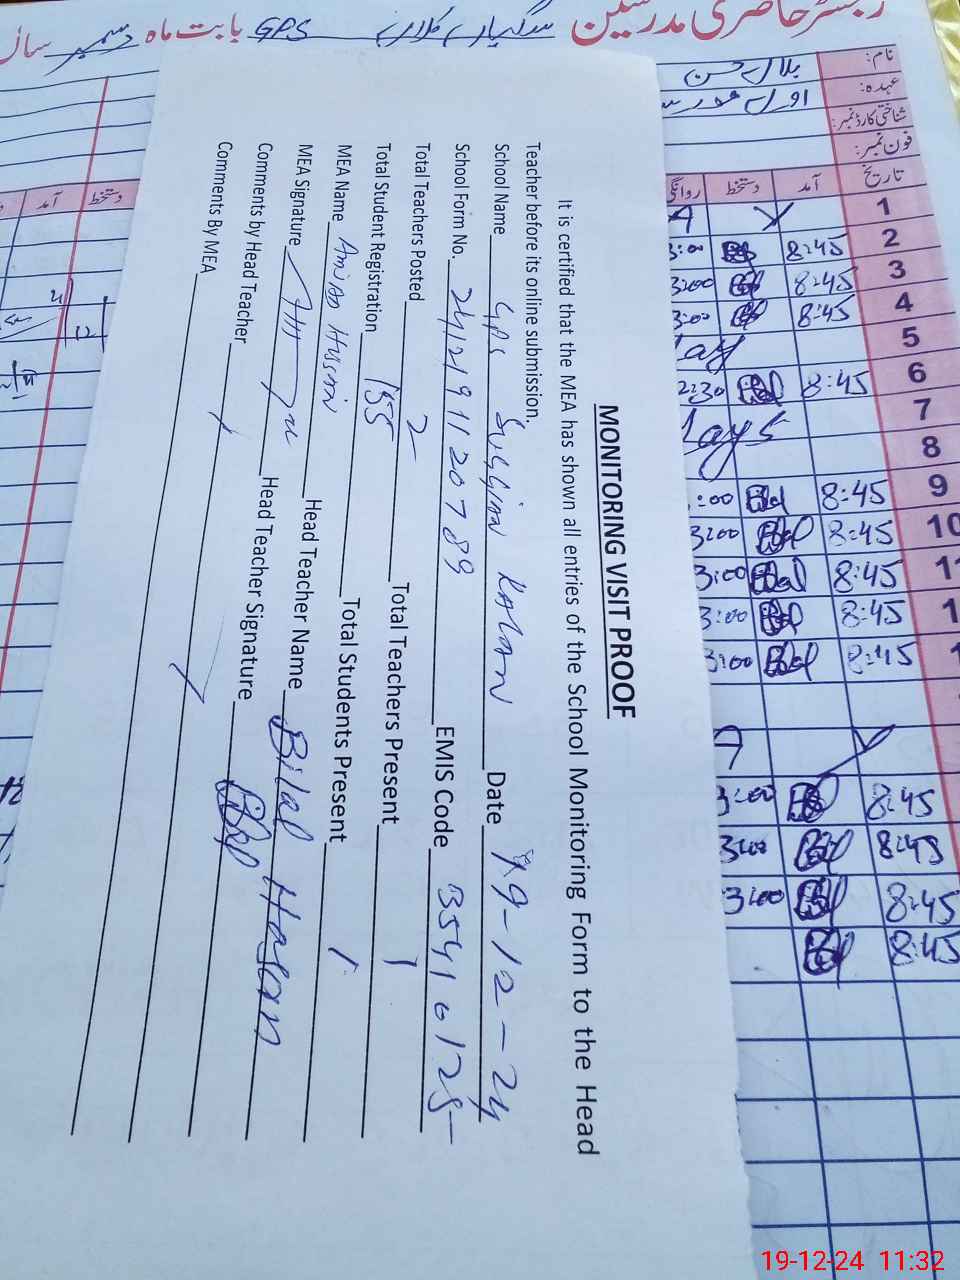 رجسٹر حاضری مدرسین سگیاں کلاں GPS بابت ماہ دسمبر سال
نام: بلال حسن
عہدہ:
شناختی کارڈ نمبر:
فون نمبر:
تاریخ آمد دستخط روانگی
1
2 8:45 3:00
3 8:45 3:00
4 8:45 3:00
5
6 8:45 2:30
7
8
9 8:45 :00
10 8:45 3:00
8:45 3:00
8:45 3:00
8:45 3:00
8:45 3:00
8:45 3:00
8:45 3:00
8:45
آمد دستخط
MONITORING VISIT PROOF
It is certified that the MEA has shown all entries of the School Monitoring Form to the Head
Teacher before its online submission.
School Name GPS Suggian Kalan Date 19-12-24
School Form No. 24121911120789 EMIS Code 35410125
Total Teachers Posted 2 Total Teachers Present 1
Total Student Registration 155 Total Students Present 1
MEA Name Amjad Hussain Head Teacher Name Bilal Hasan
MEA Signature Head Teacher Signature
Comments by Head Teacher
Comments By MEA
19-12-24 11:32